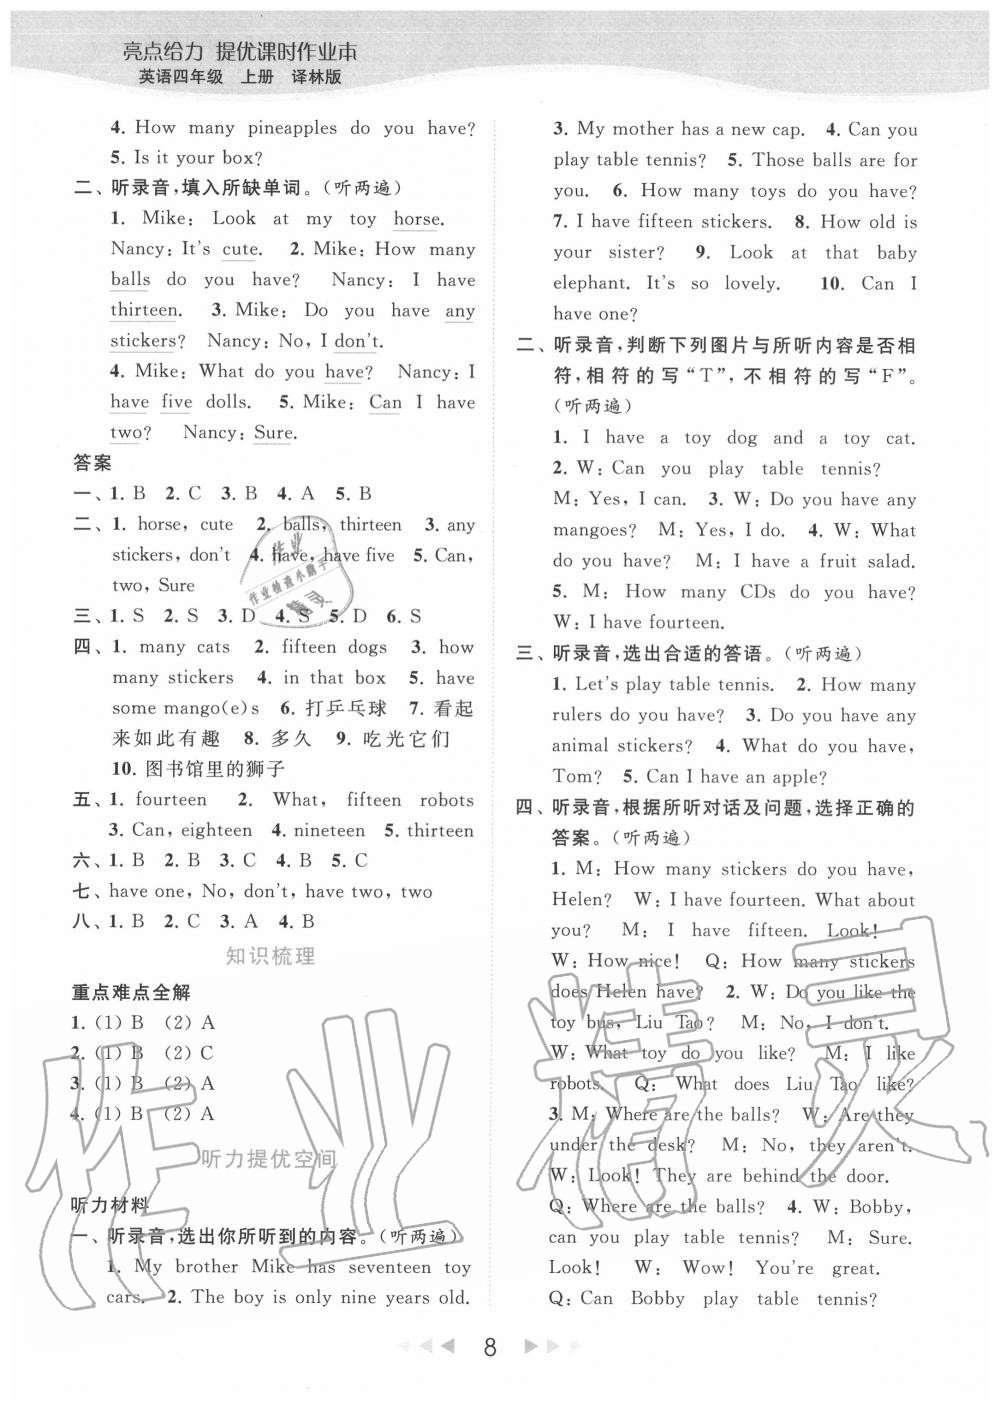 亮点给力 提优课时作业本
英语四年级 上册 译林版
4. How many pineapples do you have?
5. Is it your box?
二、听录音,填入所缺单词。(听两遍)
1. Mike: Look at my toy horse.
Nancy: It's cute. 2. Mike: How many
balls do you have? Nancy: I have
thirteen. 3. Mike: Do you have any
stickers? Nancy: No, I don't.
4. Mike: What do you have? Nancy: I
have five dolls. 5. Mike: Can I have
two? Nancy: Sure.
答案
一、1. B 2. C 3. B 4. A 5. B
二、1. horse, cute 2. balls, thirteen 3. any
stickers, don't 4. have, have five 5. Can,
two, Sure
三、1. S 2. S 3. D 4. S 5. D 6. S
四、1. many cats 2. fifteen dogs 3. how
many stickers 4. in that box 5. have
some mango(e)s 6. 打乒乓球 7. 看起
来如此有趣 8. 多久 9. 吃光它们
10. 图书馆里的狮子
五、1. fourteen 2. What, fifteen robots
3. Can, eighteen 4. nineteen 5. thirteen
六、1. B 2. B 3. C 4. B 5. C
七、have one, No, don't, have two, two
八、1. B 2. C 3. A 4. B
知识梳理
重点难点全解
1. (1) B (2) A
2. (1) B (2) C
3. (1) B (2) A
4. (1) B (2) A
听力提优空间
听力材料
一、听录音,选出你所听到的内容。(听两遍)
1. My brother Mike has seventeen toy
cars. 2. The boy is only nine years old.
3. My mother has a new cap. 4. Can you
play table tennis? 5. Those balls are for
you. 6. How many toys do you have?
7. I have fifteen stickers. 8. How old is
your sister? 9. Look at that baby
elephant. It's so lovely. 10. Can I
have one?
二、听录音,判断下列图片与所听内容是否相
符,相符的写“T”,不相符的写“F”。
(听两遍)
1. I have a toy dog and a toy cat.
2. W: Can you play table tennis?
M: Yes, I can. 3. W: Do you have any
mangoes? M: Yes, I do. 4. W: What
do you have? M: I have a fruit salad.
5. M: How many CDs do you have?
W: I have fourteen.
三、听录音,选出合适的答语。(听两遍)
1. Let's play table tennis. 2. How many
rulers do you have? 3. Do you have any
animal stickers? 4. What do you have,
Tom? 5. Can I have an apple?
四、听录音,根据所听对话及问题,选择正确的
答案。(听两遍)
1. M: How many stickers do you have,
Helen? W: I have fourteen. What about
you? M: I have fifteen. Look!
W: How nice! Q: How many stickers
does Helen have? 2. W: Do you like the
toy bus, Liu Tao? M: No, I don't.
W: What toy do you like? M: I like
robots. Q: What does Liu Tao like?
3. M: Where are the balls? W: Are they
under the desk? M: No, they aren't.
W: Look! They are behind the door.
Q: Where are the balls? 4. W: Bobby,
can you play table tennis? M: Sure.
Look! W: Wow! You're great.
Q: Can Bobby play table tennis?
8
作业
作业检查小助手
精灵
作业精灵